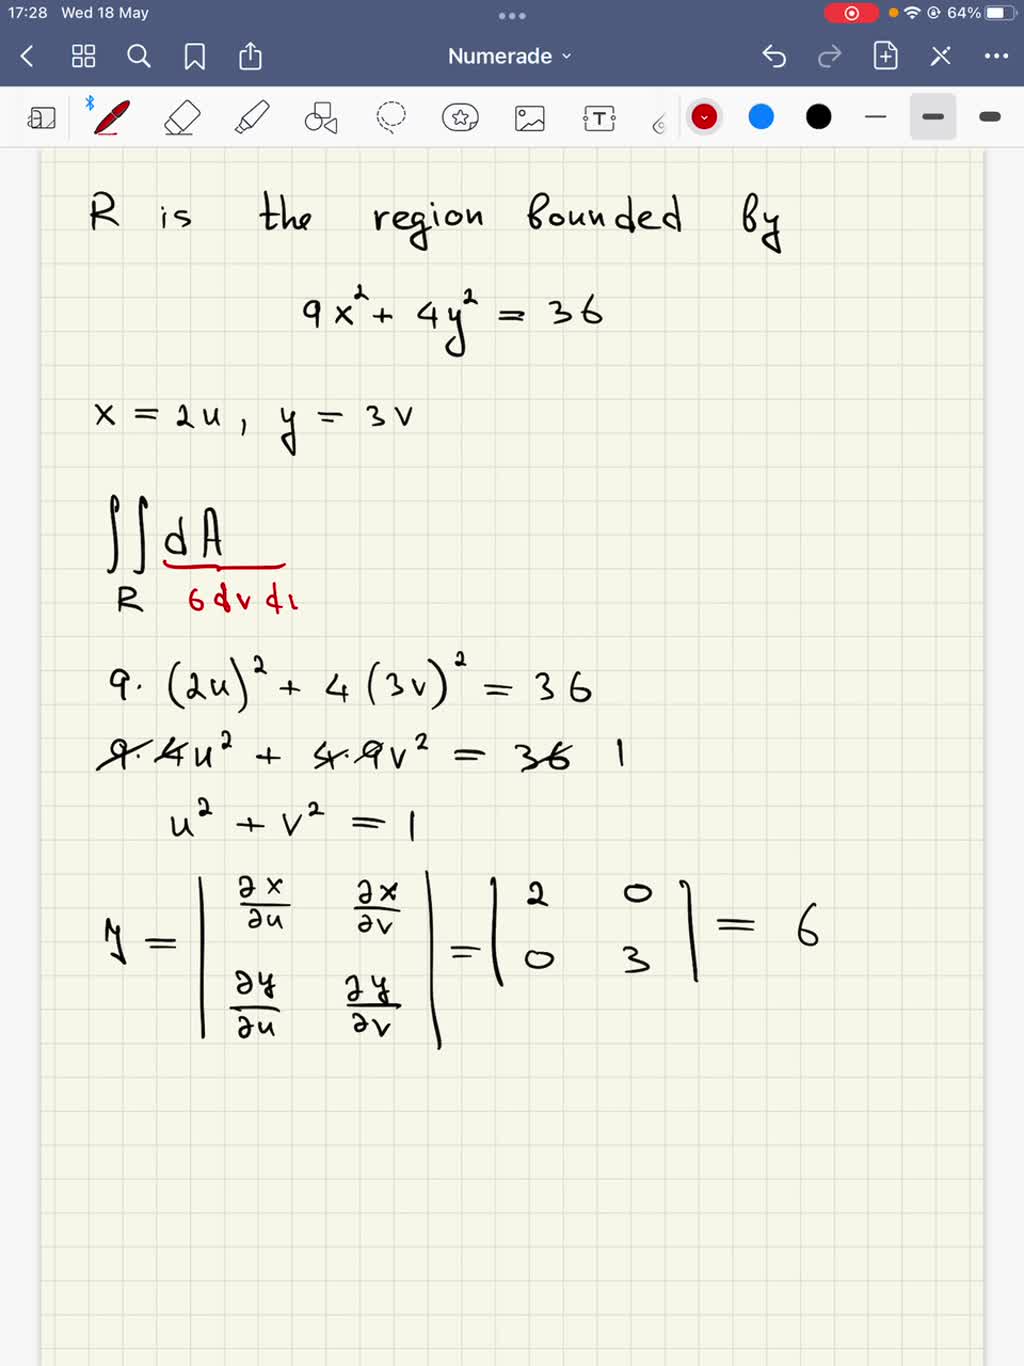 17:28 Wed 18 May 64%
Numerade
R is the region bounded by
9x² + 4y² = 36
x = 2u, y = 3v
∬ dA
R 6 dv d
9·(2u)² + 4(3v)² = 36
9·4u² + 4·9v² = 36 1
u² + v² = 1
∂x ∂x 2 0
∂u ∂v
y = = = 6
∂y ∂y 0 3
∂u ∂v